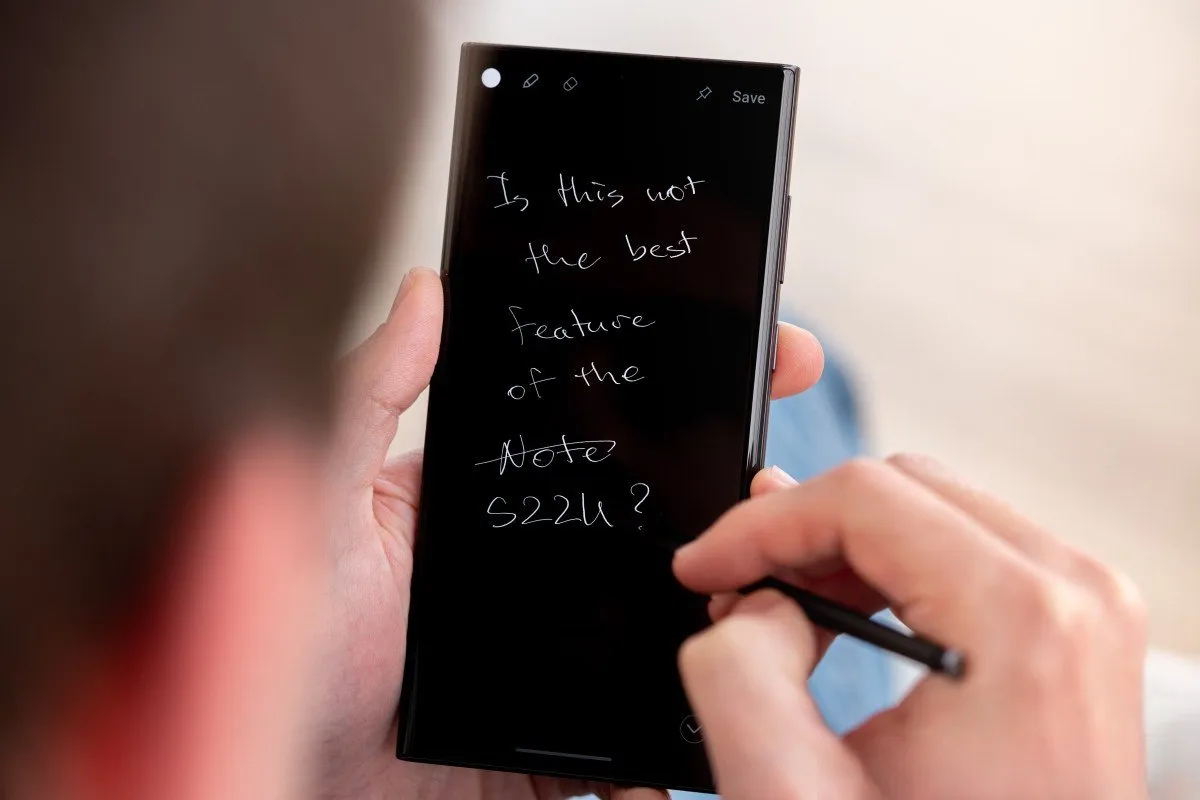 Save
Is this not
the best
feature
of the
Note
S22U?